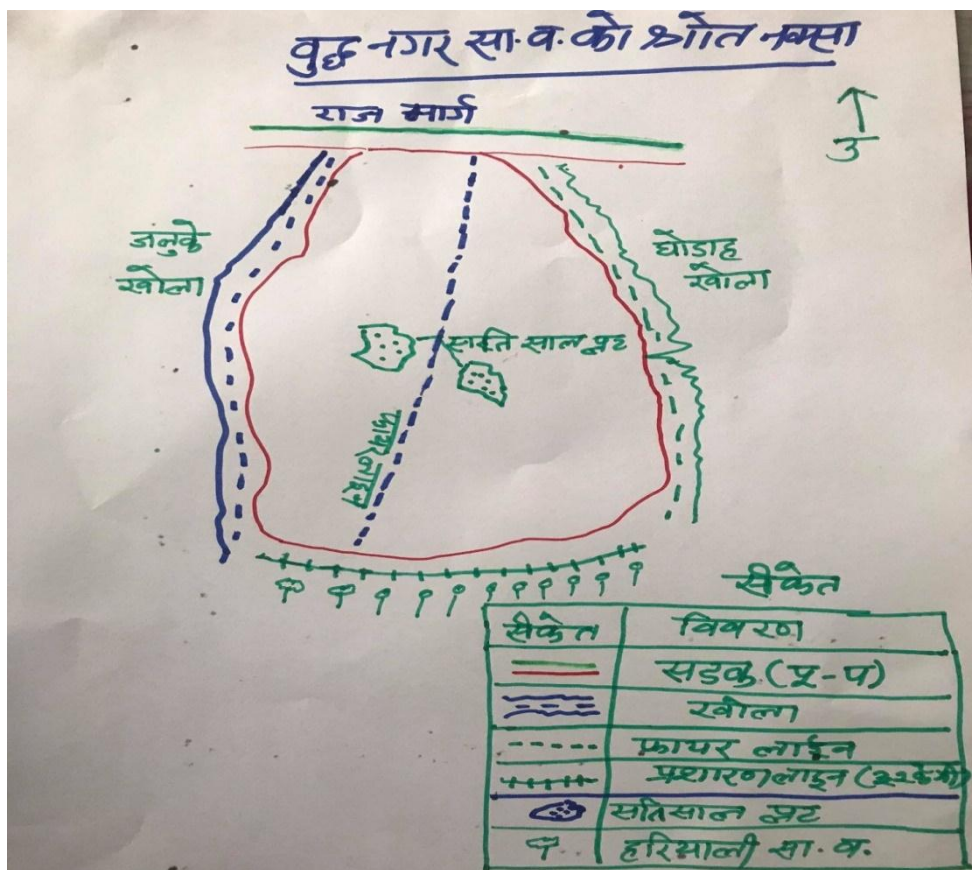 वुद्ध नगर सा.व.को श्रोत नक्सा
राज मार्ग
उ
जनुके
खोला
घोडाह
खोला
सति साल प्लट
फायर लाइन
संकेत
संकेत विवरण
सडक (पू-प)
खोला
फायर लाईन
प्रशारण लाइन
सतिसाल प्लट
हरिआली सा.व.